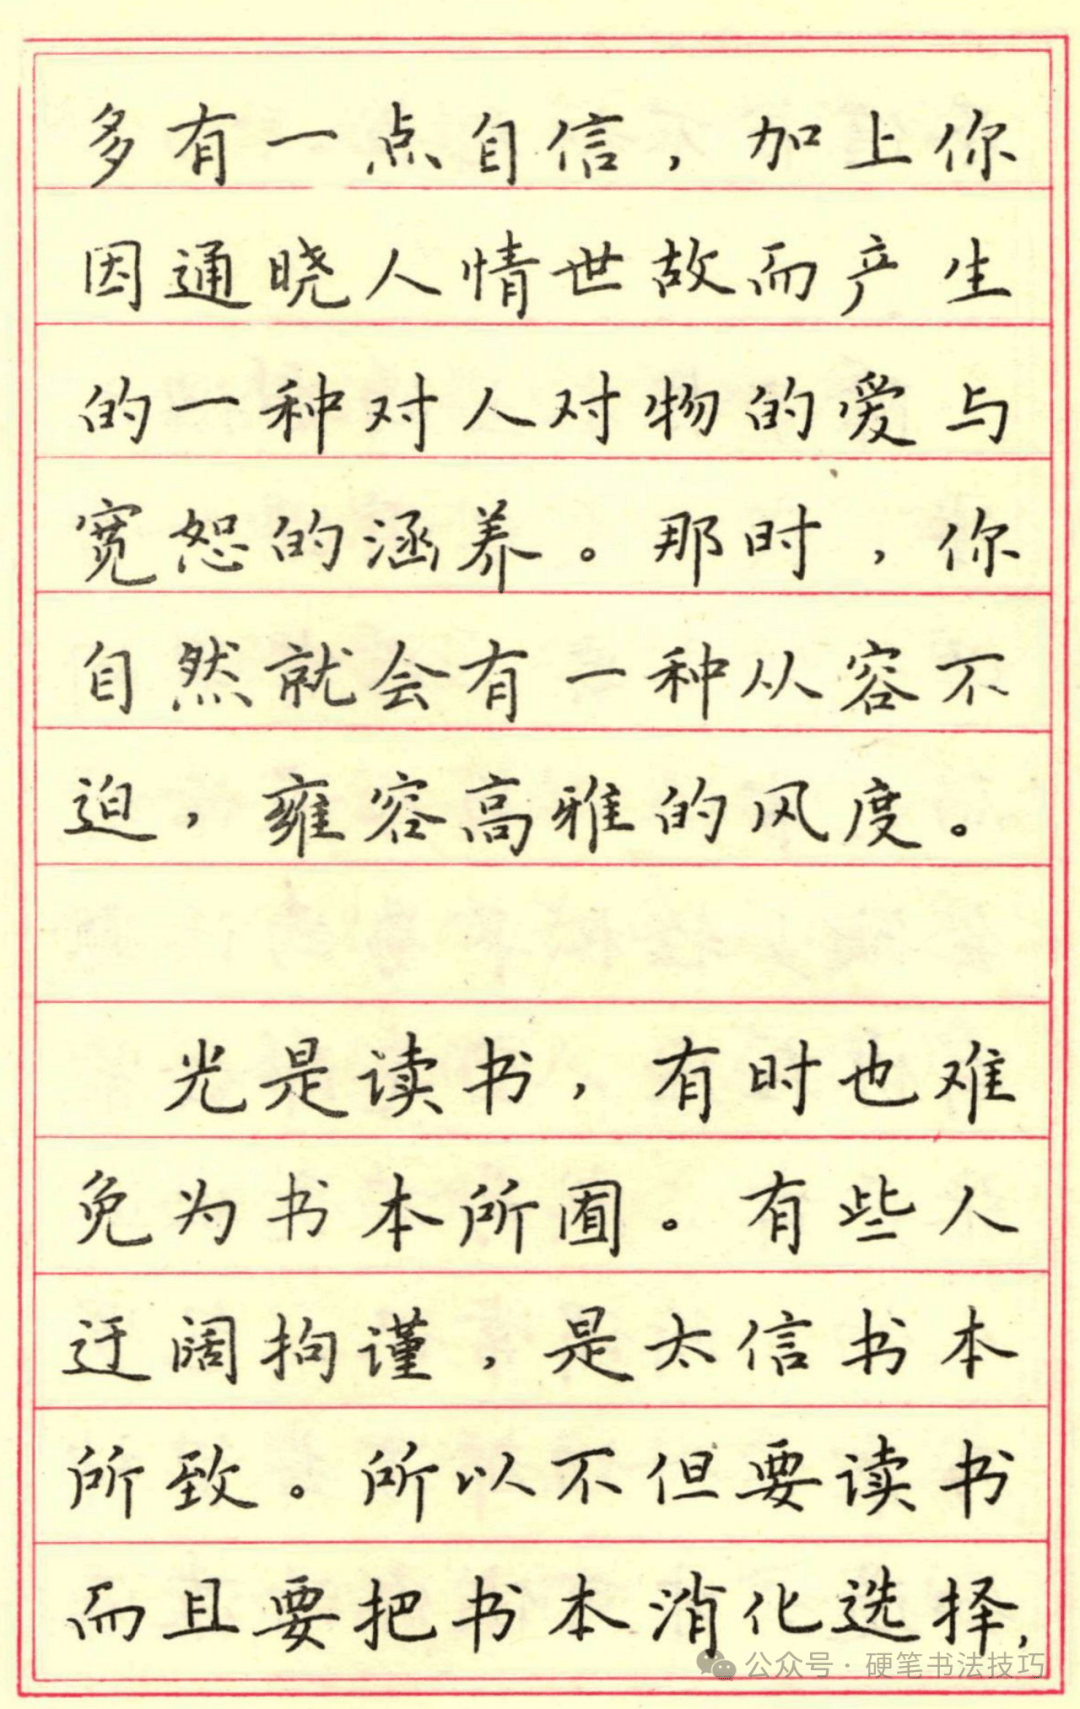 多有一点自信，加上你
因通晓人情世故而产生
的一种对人对物的爱与
宽恕的涵养。那时，你
自然就会有一种从容不
迫，雍容高雅的风度。
光是读书，有时也难
免为书本所囿。有些人
迂阔拘谨，是太信书本
所致。所以不但要读书
而且要把书本消化选择，
公众号·硬笔书法技巧